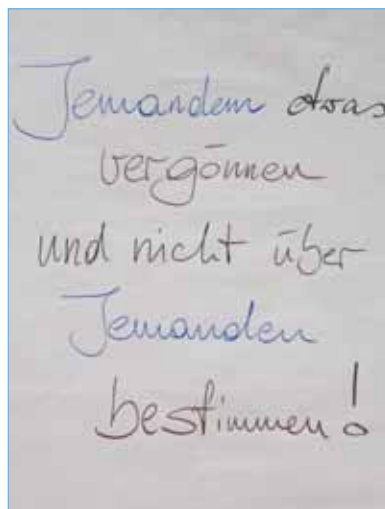 Jemandem etwas
vergönnen
und nicht über
Jemanden
bestimmen!